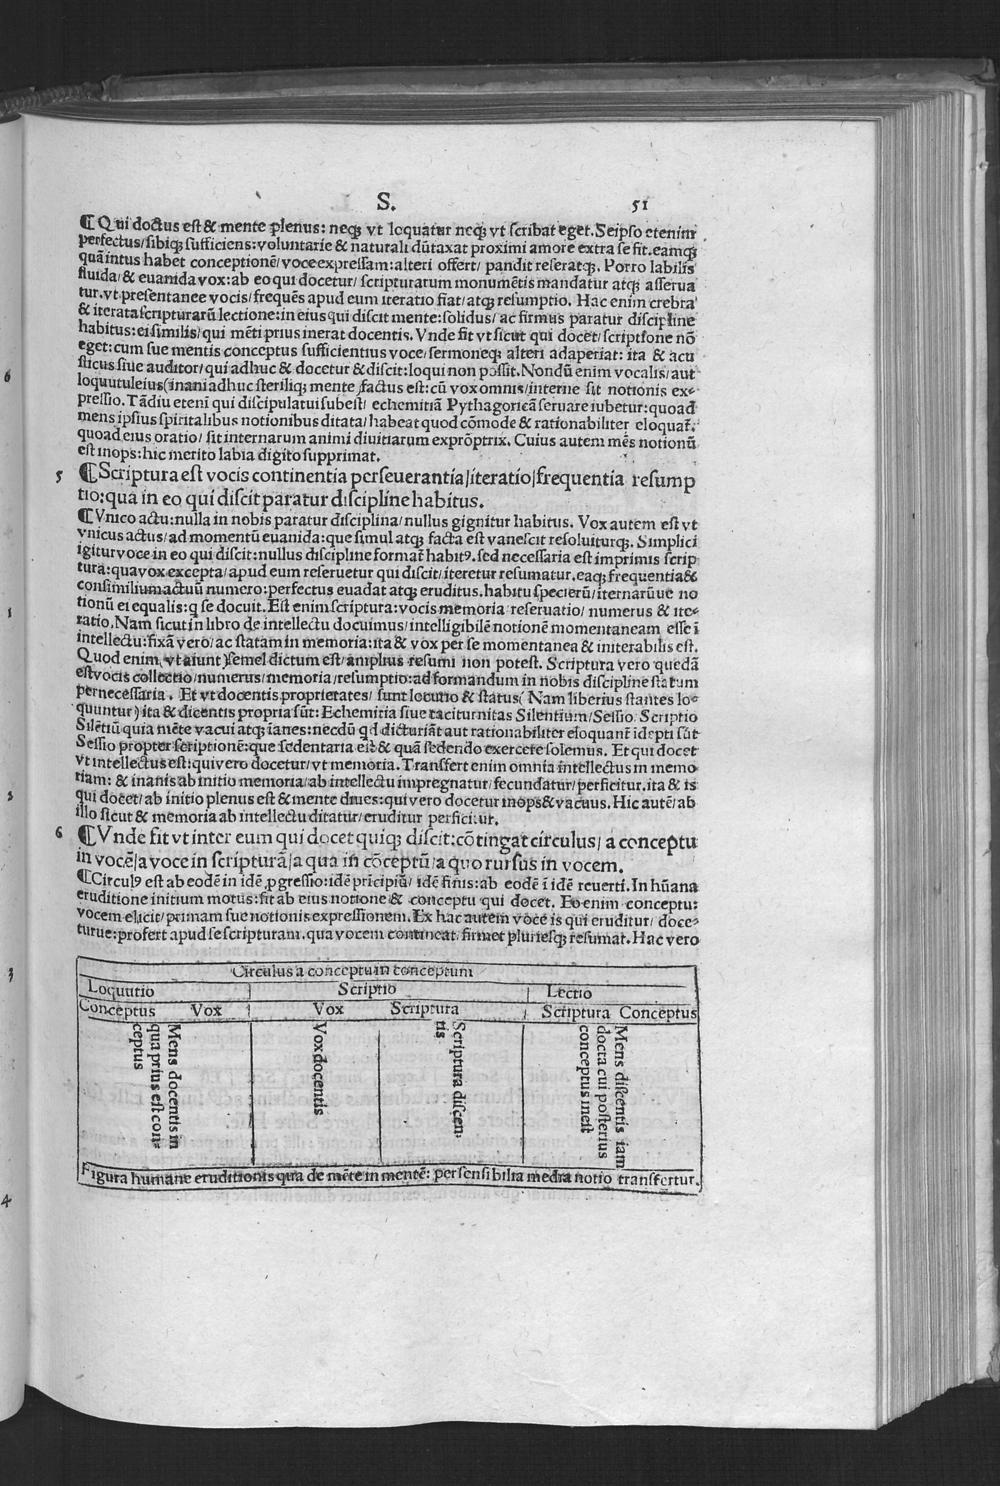 S. 51
¶Qui doctus est & mente plenus: neqꝫ vt loquatur neqꝫ vt scribat eget. Seipso etenim
perfectus/sibiqꝫ sufficiens: voluntarie & naturali dūtaxat proximi amore extra se fit. eamqꝫ
quā intus habet conceptionē/voce expressam: alteri offert/pandit reseratqꝫ. Porro labilis
fluida/& euanida vox: ab eo qui docetur/scripturarum monumētis mandatur atqꝫ asserua
tur. vt presentanee vocis/frequēs apud eum iteratio fiat/atqꝫ resumptio. Hac enim crebra
& iterata scripturarū lectione: in eius qui discit mente: solidus/ac firmus paratur discipline
habitus: ei similis/qui mēti prius inerat docentis. Vnde fit vt sicut qui docet/scriptione nō
eget: cum sue mentis conceptus sufficientius voce/sermoneqꝫ alteri adaperiat: ita & acu
sticus siue auditor/qui adhuc & docetur & discit: loqui non possit. Nondū enim vocalis/aut
loquutuleius (inani adhuc steriliqꝫ mente) factus est: cū vox omnis/interne sit notionis ex⸗
pressio. Tādiu etenī qui discipulatui subest/echemitiā Pythagoricā seruare iubetur: quoad
mens ipsius spiritalibus notionibus ditata/habeat quod cōmode & rationabiliter eloquat̄.
quoad eius oratio/sit internarum animi diuitiarum exprōptrix. Cuius autem mēs notionū
est inops: hic merito labia digito supprimat.
5 ¶Scriptura est vocis continentia perseuerantia/iteratio/frequentia resump
tio: qua in eo qui discit paratur discipline habitus.
¶Vnico actu: nulla in nobis paratur disciplina/nullus gignitur habitus. Vox autem est vt
vnicus actus/ad momentū euanida: que simul atqꝫ facta est vanescit resoluiturqꝫ. Simplici
igitur voce in eo qui discit: nullus discipline format̄ habitꝰ. sed necessaria est imprimis scrip
tura: qua vox excepta/apud eum reseruetur qui discit/iteretur resumatur. eaqꝫ frequentia &
consimilium actuū numero: perfectus euadat atqꝫ eruditus. habitu specierū/iternarūue no
tionū ei equalis: q se docuit. Est enim scriptura: vocis memoria reseruatio/numerus & ite⸗
ratio. Nam sicut in libro de intellectu docuimus/intelligibilē notionē momentaneam esse ī
intellectu: fixā vero/ac statam in memoria: ita & vox per se momentanea & initerabilis est.
Quod enim (vt aiunt) semel dictum est/amplius resumi non potest. Scriptura vero quedā
est vocis collectio/numerus/memoria/resumptio: ad formandum in nobis discipline statum
pernecessaria. Et vt docentis proprietates/sunt locutio & status (Nam liberius stantes lo⸗
quuntur) ita & dicentis propria sūt: Echemitia siue taciturnitas Silentium/Sessio Scriptio
Silētiū quia mēte vacui atqꝫ īanes: necdū qd dicturiāt aut rationabiliter eloquant̄ idepti sūt
Sessio propter scriptionē: que sedentaria est & quā sedendo exercere solemus. Et qui docet
vt intellectus est: qui vero docetur/vt memoria. Transfert enim omnia intellectus in memo
riam: & inanis ab initio memoria/ab intellectu impregnatur/fecundatur/perficitur. ita & is
qui docet/ab initio plenus est & mente diues: qui vero docetur inops & vacuus. Hic autē/ab
illo sicut & memoria ab intellectu ditatur/eruditur perficitur.
6 ¶Vnde fit vt inter eum qui docet quiqꝫ discit: cōtingat circulus/a conceptu
in vocē/a voce in scripturā/a qua in cōceptū/a quo rursus in vocem.
¶Circulꝰ est ab eodē in idē progressio: idē prīcipiū/idē finis: ab eodē ī idē reuerti. In hūana
eruditione initium motus: fit ab eius notione & conceptu qui docet. Eo enim conceptu:
vocem elicit/primam sue notionis expressionem. Ex hac autem voce is qui eruditur/doce⸗
turue: profert apud se scripturam. qua vocem contineat/firmet pluriesqꝫ resumat. Hac vero
Circulus a conceptu in conceptum
Loquutio Scriptio Lectio
Conceptus Vox Vox Scriptura Scriptura Conceptus
Mens docentis in
qua prius est con⸗
ceptus
Vox docentis
Scriptura discen⸗
tis
Mens discentis iam
docta cui posterius
conceptus inest
Figura humane eruditionis qua de mēte in mentē: per sensibilia media notio transfertur.
6
1
3
3
4